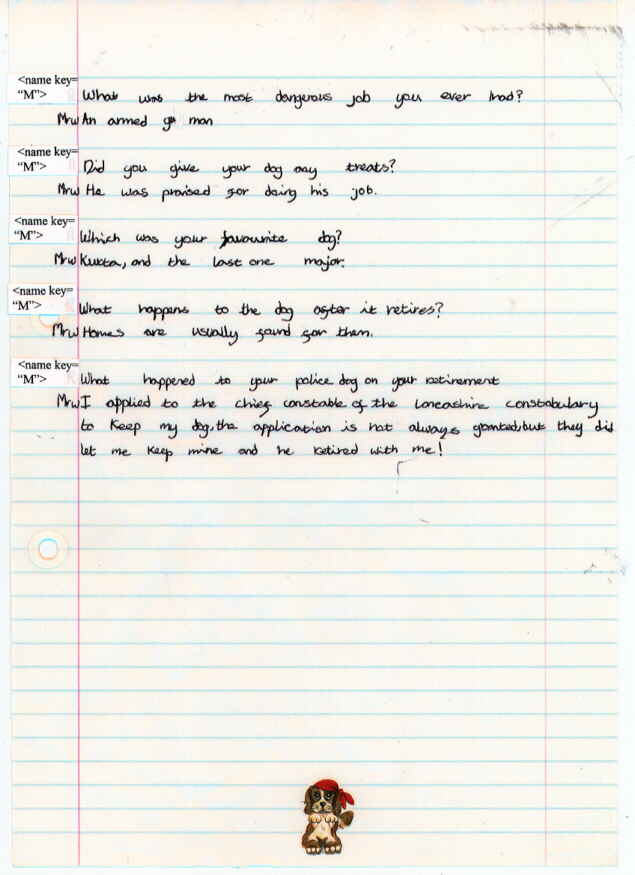 <name key=
"M"> What was the most dangerous job you ever had?
Mrw An armed ga man
<name key=
"M"> Did you give your dog any treats?
Mrw He was praised for doing his job.
<name key=
"M"> Which was your favourite dog?
Mrw Kubta, and the last one major.
<name key=
"M"> What happens to the dog after it retires?
Mrw Homes are usually found for them.
<name key=
"M"> What happened to your police dog on your retirement
Mrw I applied to the chief constable of the Lancashire constabulary
to keep my dog, the application is not always granted, but they did
let me keep mine and he retired with me!